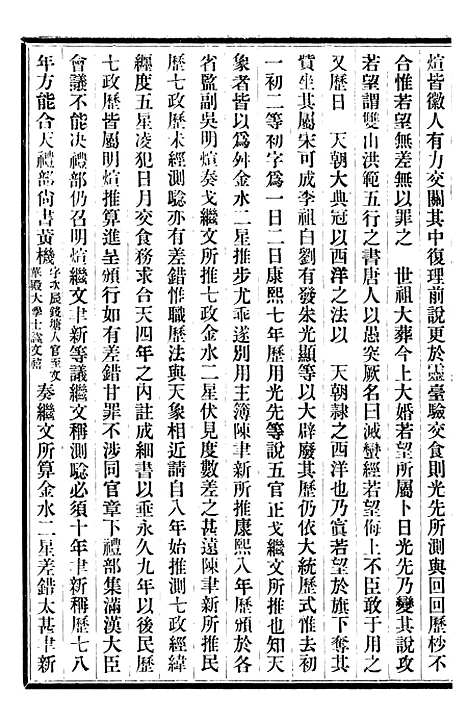 煊皆徽人有力交關其中復理前說更於靈臺驗交食則光先所測與回回歷杪不
合惟若望無差無以罪之　世祖大葬今上大婚若望所屬卜日光先乃變其說攻
若望謂雙山洪範五行之書唐人以愚突厥名曰滅蠻經若望侮上不臣敢于用之
又歷日　天朝大典冠以西洋之法以　天朝隸之西洋也乃寘若望於旗下奪其
賞坐其屬宋可成李祖白劉有發朱光顯等以大辟廢其歷仍依大統歷式惟去初
一初二等初字爲一日二日康熙七年歷用光先等說五官正戈繼文所推也知天
象者皆以爲舛金水二星推步尤乖遂別用主簿陳聿新所推康熙八年歷頒於各
省監副吳明煊奏戈繼文所推七政金水二星伏見度數差之甚遠陳聿新所推民
歷七政歷未經測驗亦有差錯惟職歷法與天象相近請自八年始推測七政經緯
經度五星凌犯日月交食務求合天四年之內註成細書以垂永久九年以後民歷
七政歷皆屬明煊推算進呈頒行如有差錯甘罪不涉同官章下禮部集滿漢大臣
會議不能决禮部仍召明煊繼文聿新等議繼文稱測驗必須十年聿新稱歷七八
年方能合天禮部尙書黃機字次辰錢塘人官至文華殿大學士諡文僖奏繼文所算金水二星差錯太甚聿新